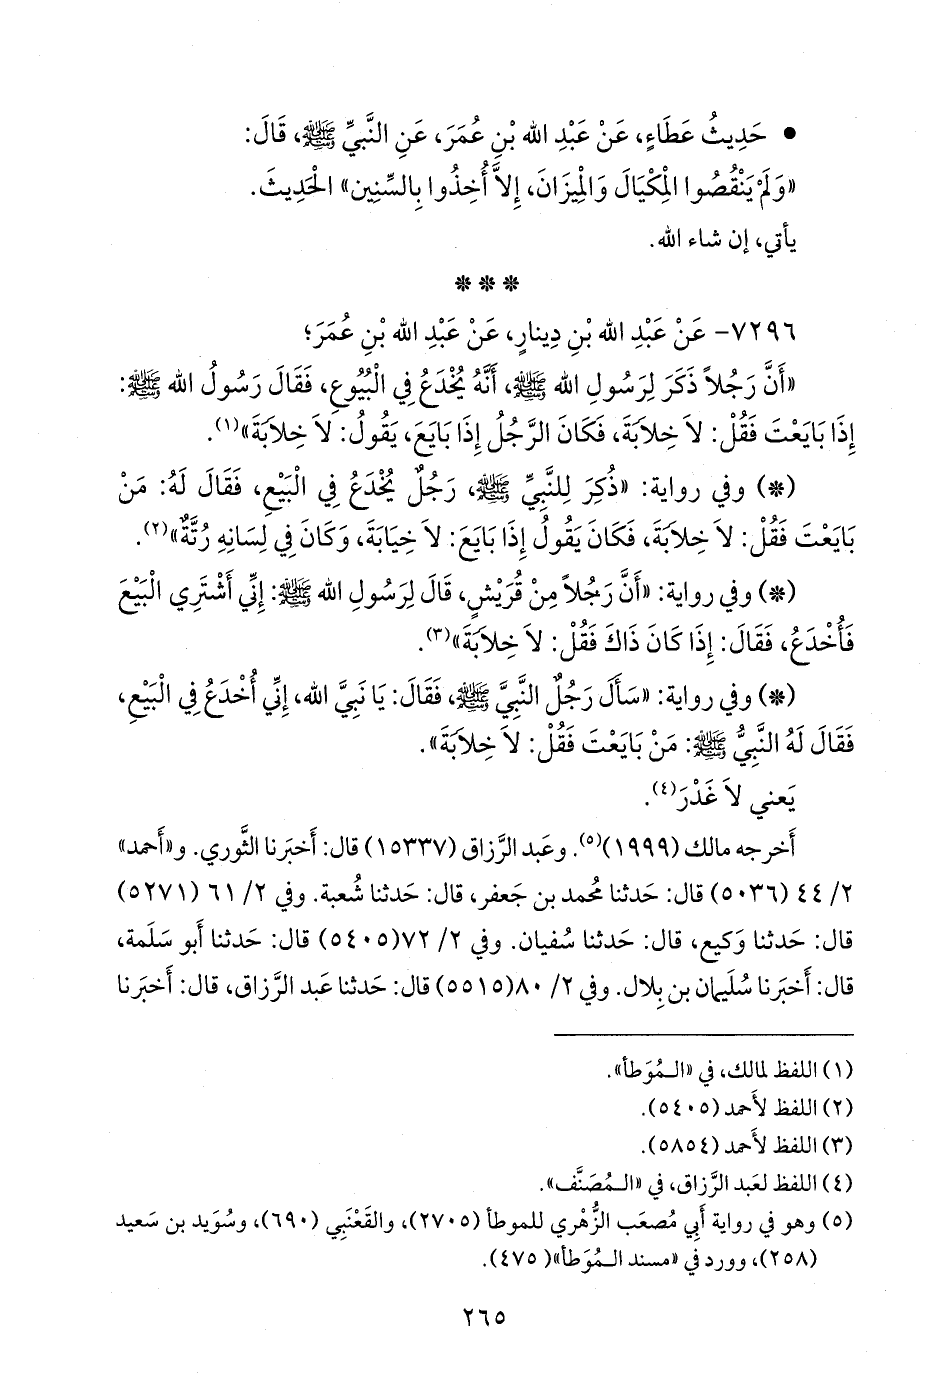 • حَدِيثُ عَطَاءٍ، عَنْ عَبْدِ الله بْنِ عُمَرَ، عَنِ النَّبِيِّ ﷺ، قَالَ:
«وَلَمْ يَنْقُصُوا الْمِكْيَالَ وَالْمِيزَانَ، إِلاَّ أُخِذُوا بِالسِّنِينِ» الْحَدِيثَ.
يأتي، إن شاء الله.
❋ ❋ ❋
٧٢٩٦- عَنْ عَبْدِ الله بْنِ دِينارٍ، عَنْ عَبْدِ الله بْنِ عُمَرَ؛
«أَنَّ رَجُلاً ذَكَرَ لِرَسُولِ الله ﷺ، أَنَّهُ يُخْدَعُ فِي الْبُيُوعِ، فَقَالَ رَسُولُ الله ﷺ:
إِذَا بَايَعْتَ فَقُلْ: لاَ خِلاَبَةَ، فَكَانَ الرَّجُلُ إِذَا بَايَعَ، يَقُولُ: لاَ خِلاَبَةَ»(١).
(*) وفي رواية: «ذُكِرَ لِلنَّبِيِّ ﷺ، رَجُلٌ يُخْدَعُ فِي الْبَيْعِ، فَقَالَ لَهُ: مَنْ
بَايَعْتَ فَقُلْ: لاَ خِلاَبَةَ، فَكَانَ يَقُولُ إِذَا بَايَعَ: لاَ خِيَابَةَ، وَكَانَ فِي لِسَانِهِ رُتَّةٌ»(٢).
(*) وفي رواية: «أَنَّ رَجُلاً مِنْ قُرَيْشٍ، قَالَ لِرَسُولِ الله ﷺ: إِنِّي أَشْتَرِي الْبَيْعَ
فَأُخْدَعُ، فَقَالَ: إِذَا كَانَ ذَاكَ فَقُلْ: لاَ خِلاَبَةَ»(٣).
(*) وفي رواية: «سَأَلَ رَجُلٌ النَّبِيَّ ﷺ، فَقَالَ: يَا نَبِيَّ الله، إِنِّي أُخْدَعُ فِي الْبَيْعِ،
فَقَالَ لَهُ النَّبِيُّ ﷺ: مَنْ بَايَعْتَ فَقُلْ: لاَ خِلاَبَةَ».
يَعني لاَ غَدْرَ(٤).
أَخرجه مالك (١٩٩٩)(٥). وعَبد الرَّزاق (١٥٣٣٧) قال: أَخبَرنا الثَّوري. و«أَحمد»
٢/ ٤٤ (٥٠٣٦) قال: حَدثنا مُحمد بن جَعفر، قال: حَدثنا شُعبة. وفي ٢/ ٦١ (٥٢٧١)
قال: حَدثنا وَكيع، قال: حَدثنا سُفيان. وفي ٢/ ٧٢(٥٤٠٥) قال: حَدثنا أَبو سَلَمة،
قال: أَخبَرنا سُلَيمان بن بِلال. وفي ٢/ ٨٠(٥٥١٥) قال: حَدثنا عَبد الرَّزاق، قال: أَخبَرنا
(١) اللفظ لمالك، في «الـمُوَطأ».
(٢) اللفظ لأَحمد (٥٤٠٥).
(٣) اللفظ لأَحمد (٥٨٥٤).
(٤) اللفظ لعَبد الرَّزاق، في «الـمُصَنَّف».
(٥) وهو في رواية أَبي مُصعَب الزُّهْري للموطأ (٢٧٠٥)، والقَعْنَبي (٦٩٠)، وسُوَيد بن سَعيد
(٢٥٨)، وورد في «مسند الـمُوَطأ»( ٤٧٥).
٢٦٥